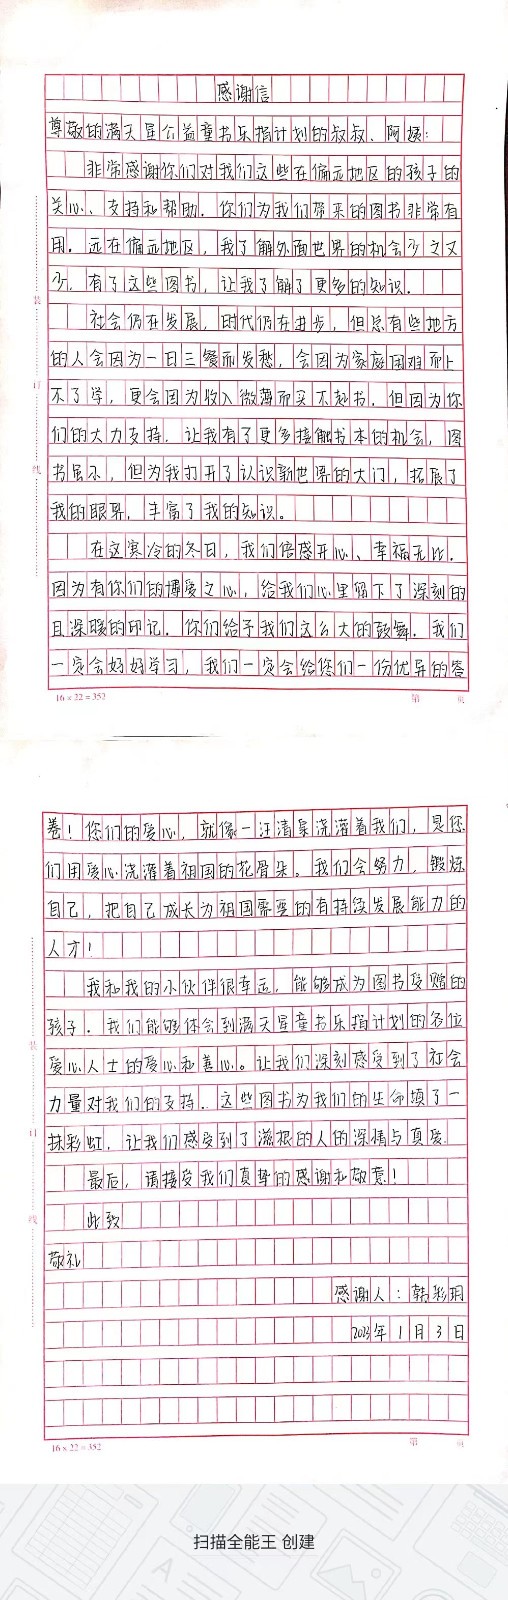 感谢信
尊敬的满天星公益童书乐捐计划的叔叔、阿姨:
非常感谢你们对我们这些在偏远地区的孩子的
关心、支持和帮助. 你们为我们带来的图书非常有
用. 远在偏远地区, 我了解外面世界的机会少之又
少, 有了这些图书, 让我了解了更多的知识.
社会仍在发展, 时代仍在进步, 但总有些地方
的人会因为一日三餐而发愁, 会因为家庭困难而上
不了学, 更会因为收入微薄而买不起书. 但因为你
们的大力支持. 让我有了更多接触书本的机会, 图
书虽小, 但为我打开了认识新世界的大门, 拓展了
我的眼界, 丰富了我的知识。
在这寒冷的冬日, 我们倍感开心、幸福无比.
因为有你们的博爱之心, 给我们心里留下了深刻的
且深暖的印记. 你们给予我们这么大的鼓舞. 我们
一定会好好学习, 我们一定会给您们一份优异的答
16×22=352
第 页
卷! 您们的爱心, 就像一汪清泉浇灌着我们, 是您
们用爱心浇灌着祖国的花骨朵。我们会努力, 锻炼
自己, 把自己成长为祖国需要的有持续发展能力的
人才!
我和我的小伙伴很幸运, 能够成为图书受赠的
孩子. 我们能够体会到满天星童书乐捐计划的各位
爱心人士的爱心和善心。让我们深刻感受到了社会
力量对我们的支持. 这些图书为我们的生命填了一
抹彩虹, 让我们感受到了滋根的人的深情与真爱.
最后, 请接受我们真挚的感谢和敬意!
此致
敬礼
感谢人: 韩彩玥
2023年1月3日
16×22=352
第 页
装
订
线
装
订
线
扫描全能王 创建